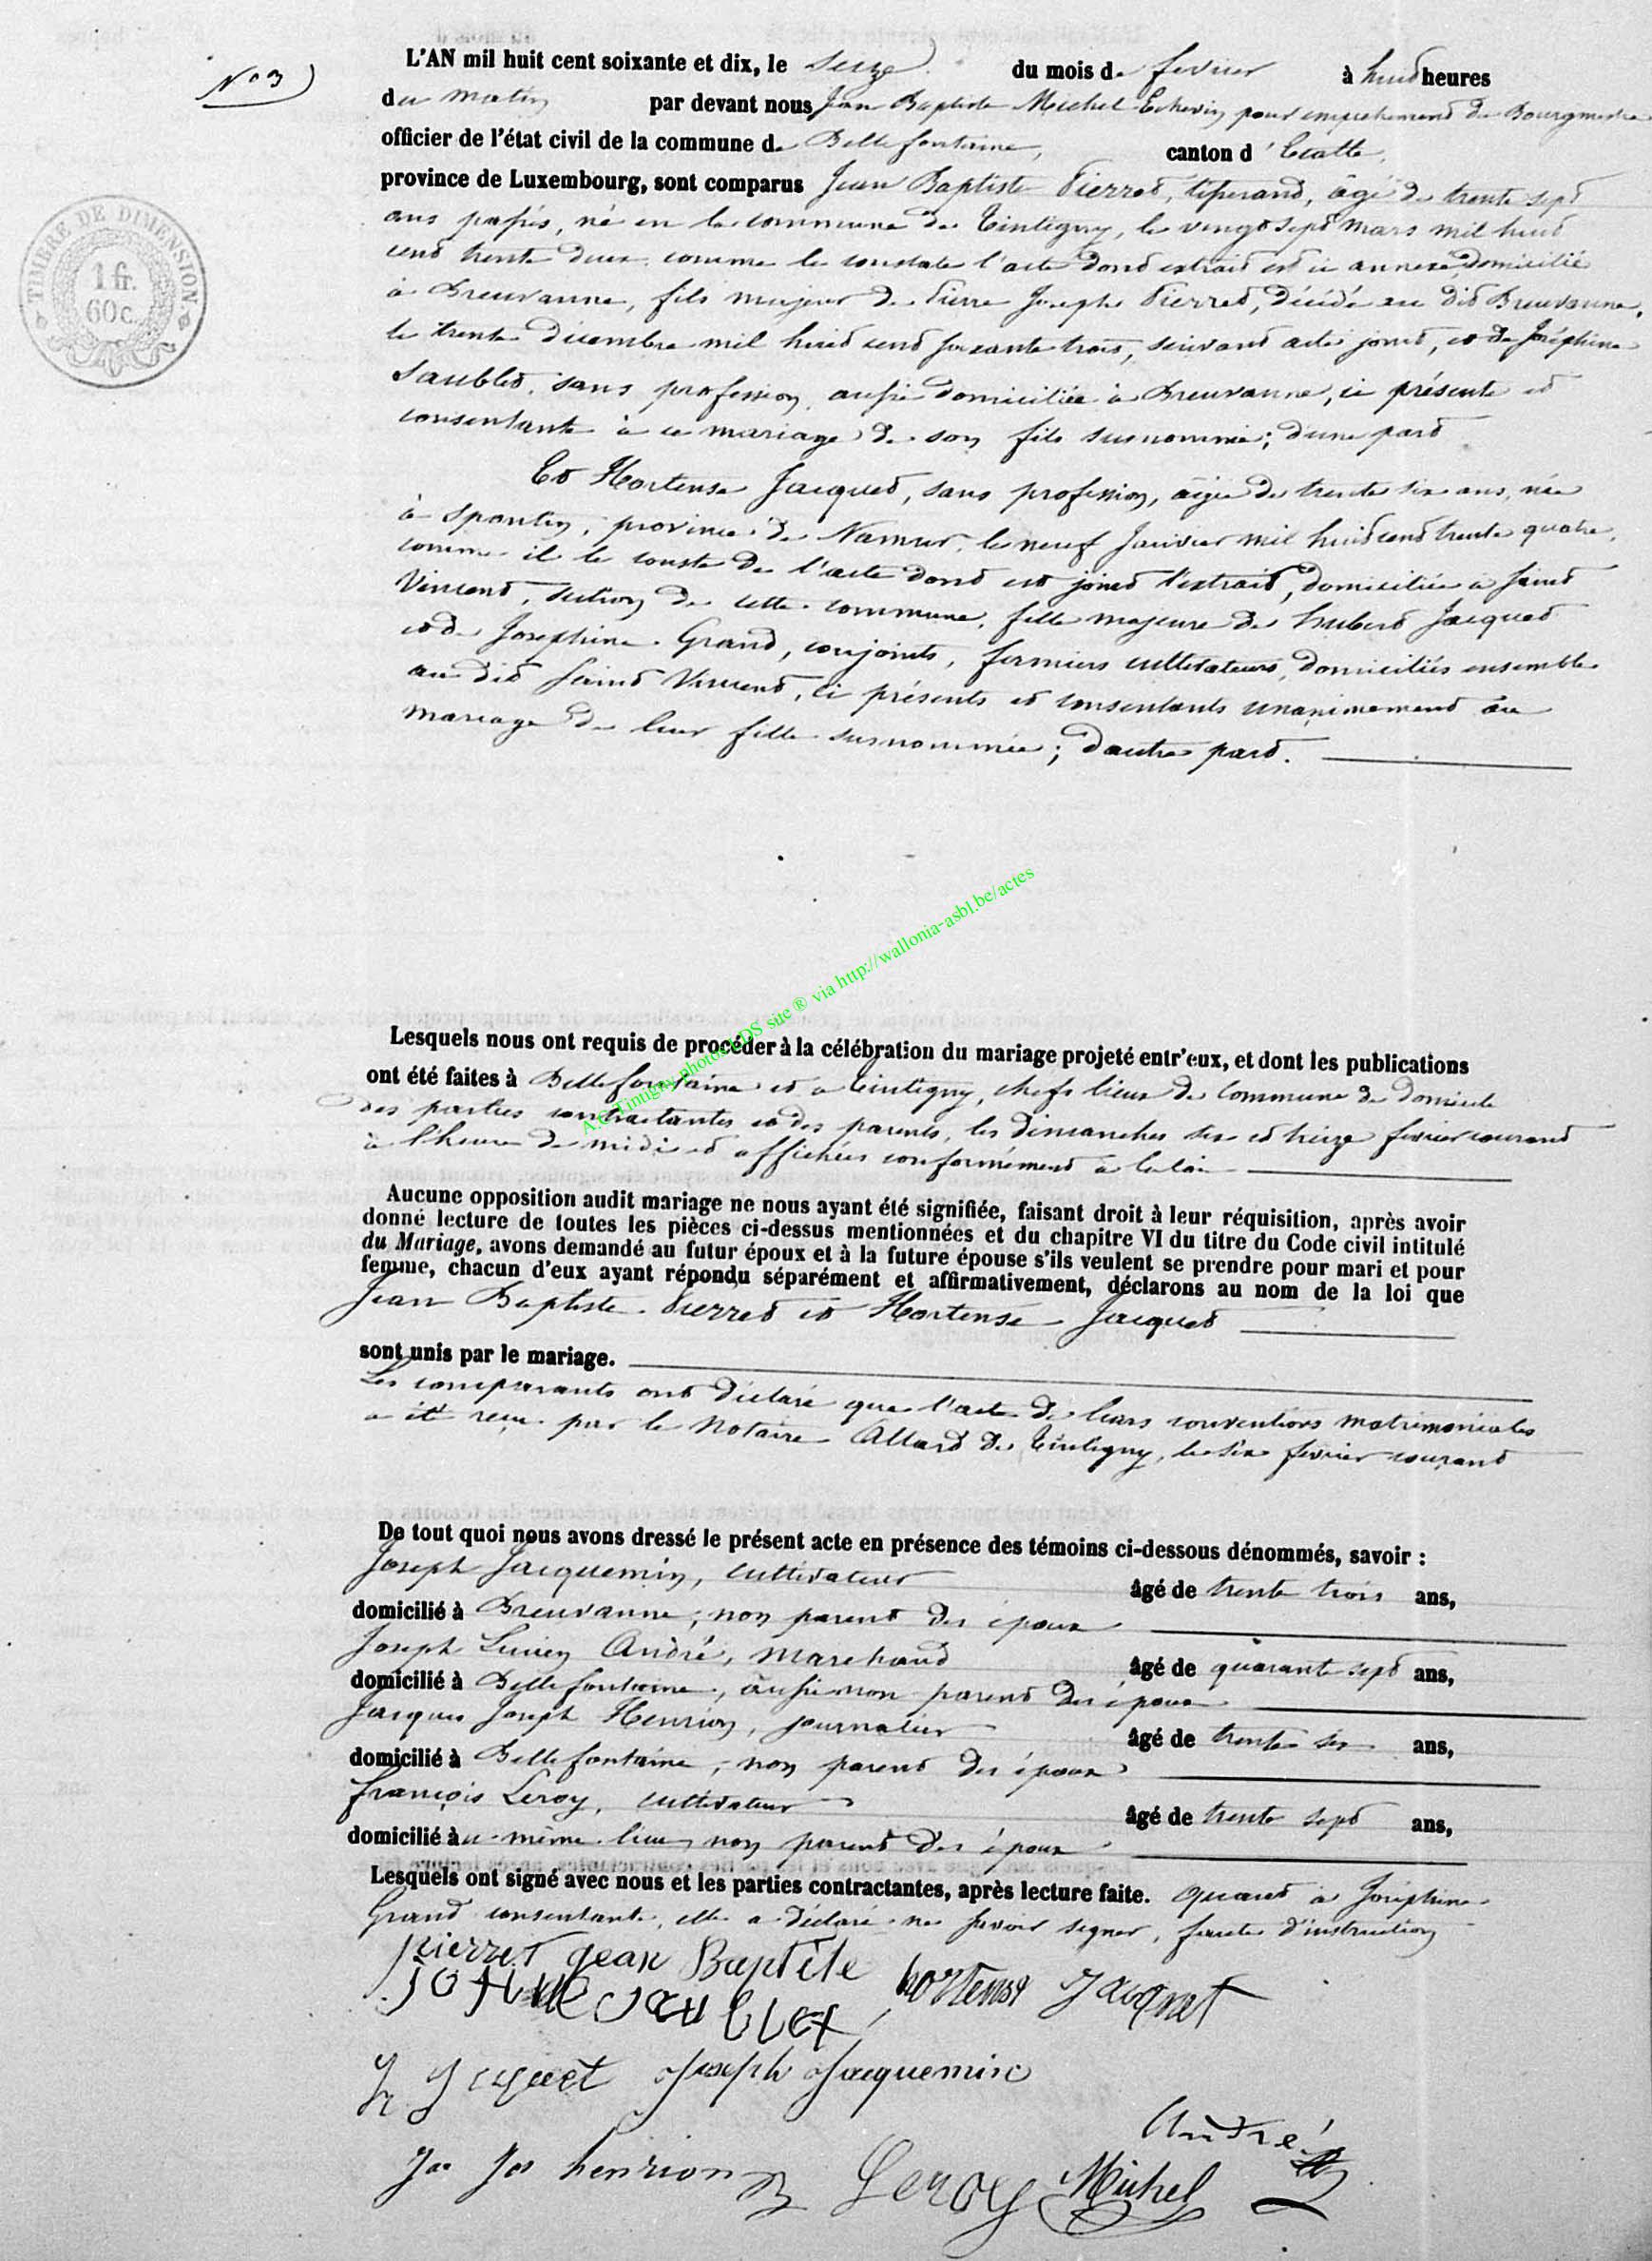 N° 3
L'AN mil huit cent soixante et dix, le seize du mois de fevrier à huit heures
du matin par devant nous Jean Baptiste Michel Echevin pour empechement du Bourgmestre
officier de l'état civil de la commune de Bellefontaine, canton d'Etalle,
province de Luxembourg, sont comparus Jean Baptiste Pierret, tisserand, âgé de trente sept
ans passés, né en la commune de Tintigny, le vingt sept mars mil huit
cent trente deux comme le constate l'acte dont extrait est ci annexé domicilié
à Breuvanne, fils majeur de Pierre Joseph Pierret, décédé au dit Breuvanne,
le trente Décembre mil huit cent soixante trois, suivant acte joint, et de Joséphine
Saublet, sans profession, aussi domiciliée à Breuvanne, ici présente et
consentante à ce mariage de son fils susnommé; d'une part
Et Hortense Jacquet, sans profession, âgée de trente six ans, née
à Spontin, province de Namur, le neuf Janvier mil huit cent trente quatre,
comme il le conste de l'acte dont est joint l'extrait, domiciliée à Saint
Vincent, section de cette commune, fille majeure de hubert Jacquet
et de Josephine Grand, conjoints, fermiers cultivateurs, domiciliés ensemble
au dit Saint Vincent, ici présents et consentants unanimement au
mariage de leur fille susnommée; d'autre part.
TIMBRE DE DIMENSION
1 fr.
60 c.
A.C. Tintigny photos LDS site ® via http://wallonia-asbl.be/actes
Lesquels nous ont requis de procéder à la célébration du mariage projeté entr'eux, et dont les publications
ont été faites à Bellefontaine et à Tintigny, chefs lieux de Commune de domicile
des parties contractantes et des parents, les dimanches six et treize fevrier courant
à l'heure de midi et affichées conformément à la loi
Aucune opposition audit mariage ne nous ayant été signifiée, faisant droit à leur réquisition, après avoir
donné lecture de toutes les pièces ci-dessus mentionnées et du chapitre VI du titre du Code civil intitulé
du Mariage, avons demandé au futur époux et à la future épouse s'ils veulent se prendre pour mari et pour
femme, chacun d'eux ayant répondu séparément et affirmativement, déclarons au nom de la loi que
Jean Baptiste Pierret et Hortense Jacquet
sont unis par le mariage.
Les comparants ont déclaré que l'acte de leurs conventions matrimoniales
a été reçu par le Notaire Allard de Tintigny, le six fevrier courant
De tout quoi nous avons dressé le présent acte en présence des témoins ci-dessous dénommés, savoir :
Joseph Jacquemin, cultivateur âgé de trente trois ans,
domicilié à Breuvanne; non parent des époux
Joseph Lucien André, Marchand âgé de quarante sept ans,
domicilié à Bellefontaine, aussi non parent des époux
Jacques Joseph Henrion, journalier âgé de trente six ans,
domicilié à Bellefontaine; non parent des époux
François Leroy, cultivateur âgé de trente sept ans,
domicilié au même lieu, non parent des époux
Lesquels ont signé avec nous et les parties contractantes, après lecture faite. Quant à Joséphine
Grand consentante, elle a déclaré ne savoir signer, faute d'instruction
pierret jean Baptite hortense Jacquet
Saublet
h Jacquet Joseph Jacquemin
André
Ja Jos henrion Leroy Michel